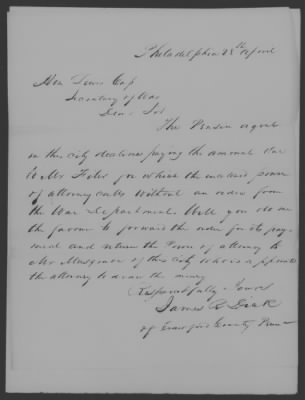 Philadelphia 28th April
Hon Lewis Cass
Secretary of War
Dear Sir
The Pension agent
in this city declines paying the amount due
to Mr for which the enclosed power
of attorney calls without an order from
the War Department. Will you do me
the favour to forward the order for its pay-
ment and return the Power of attorney to
Mr of this city who is appointed
the attorney to draw the money
Respectfully Yours
James
of Crawford County Penn